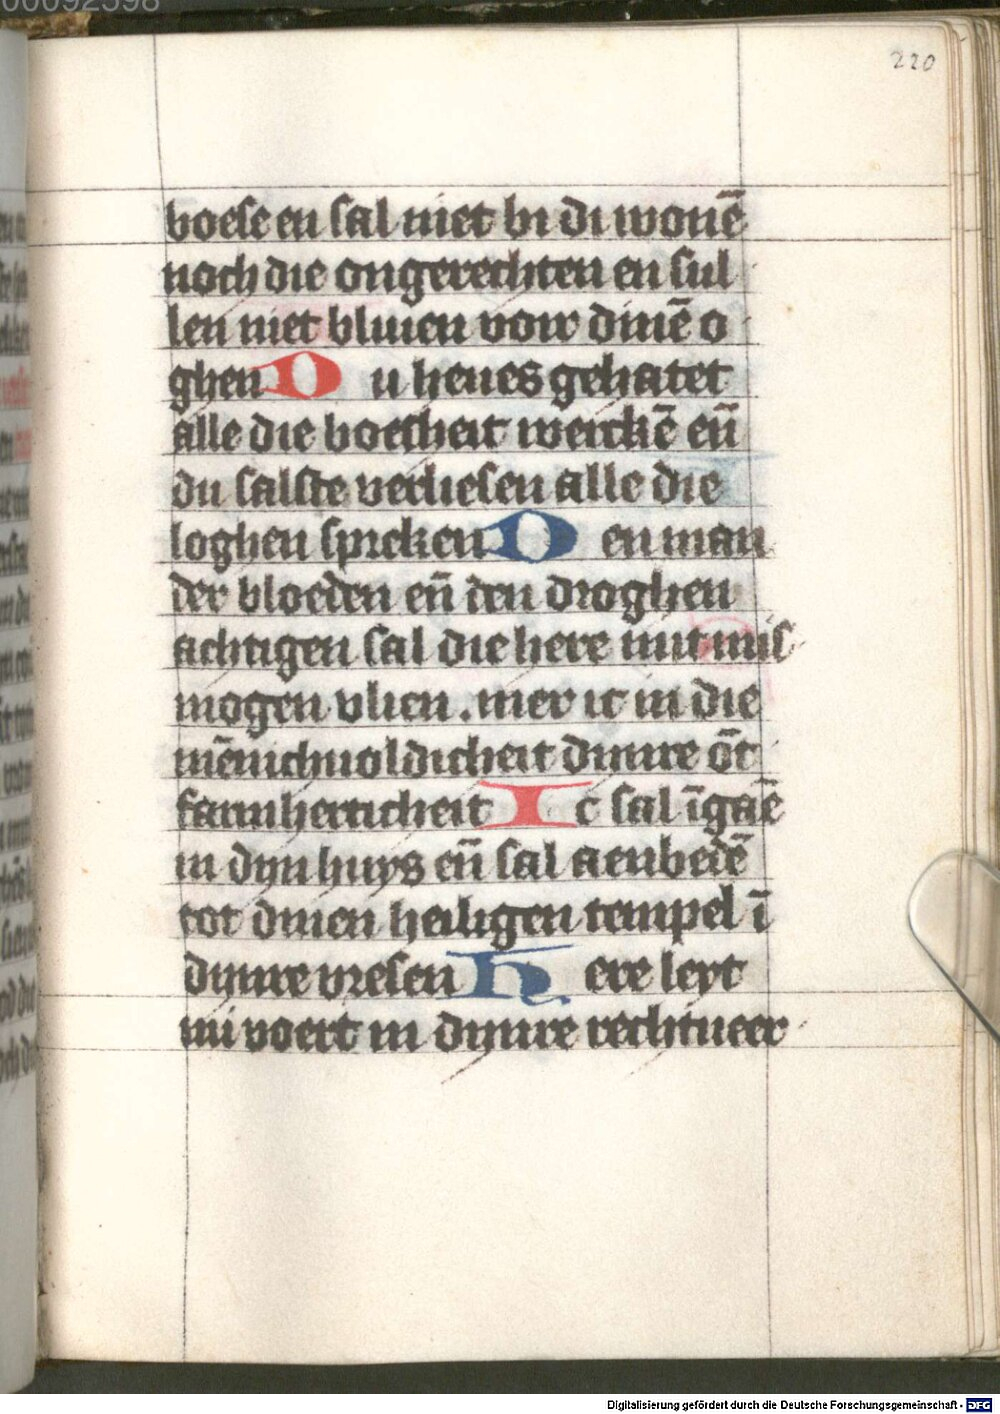 220
boese en sal niet bi di wonē
noch die ongerechten en sul
len niet bliuen voir dinē o
ghen D u heues gehatet
alle die boesheit werckē eñ
du salste verliesen alle die
loghen sprekens D en man
der bloeden eñ den droghen
achtigen sal die here
mogen vlien. mer ic in die
mēnichuoldicheit dinre ōt
farmherticheit I c sal īgaē
in dijn huys eñ sal aenbedē
tot dinen heiligen tempel ī
dijnre vresen H ere leyt
mi voert in dijnre rechtueer
Digitalisierung gefördert durch die Deutsche Forschungsgemeinschaft - DFG